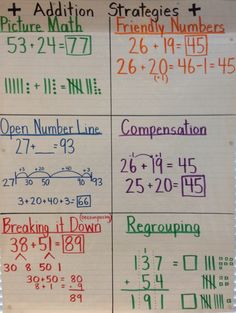 + Addition Strategies +
Picture Math
53+24=77
Friendly Numbers
26+19=45
26+20=46-1=45
(-1)
Open Number Line
27+__=93
+3 +20 +40 +3
27 30 50 90 93
3+20+40+3=66
Compensation
26+19=45
25+20=45
Breaking it Down
(decomposing)
38+51=89
30 8 50 1
30+50=80
8+1=9
89
Regrouping
137
+54
191